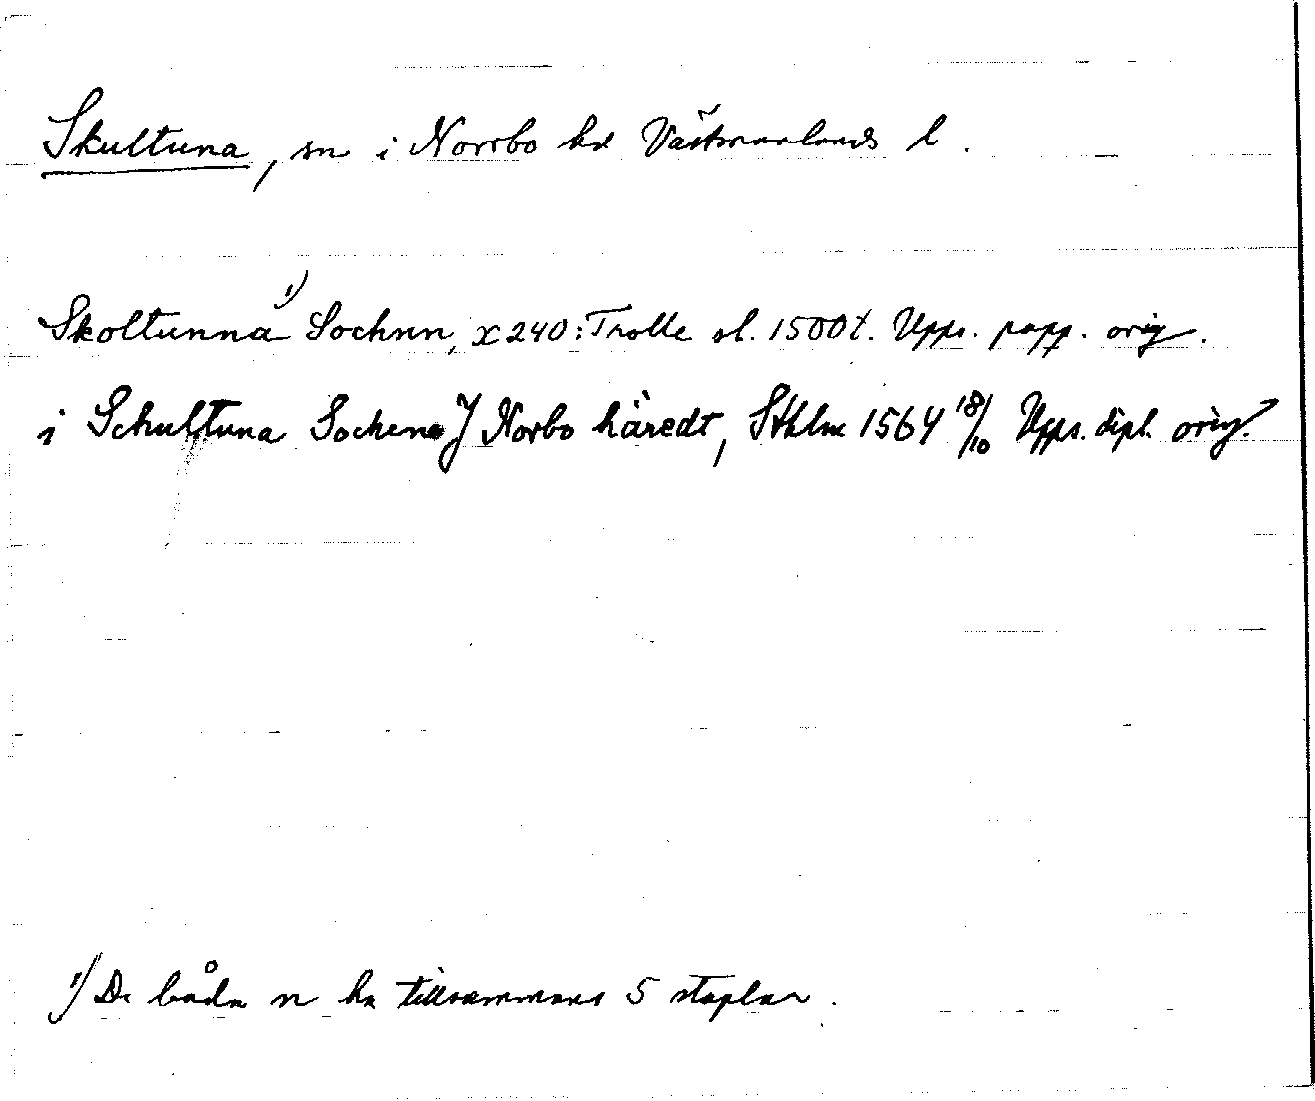 Skultuna, sn i Norrbo hd Västmanlands l.
Skoltunna 1) Sochnn, X 240: Trolle sl. 1500 t. Upps. papp. orig.
i Schultuna Sochene J Norbo häredt, Sthlm 1564 18/10 Upps. dipl. orig.
1) De båda n ha tillsammans 5 staplar.